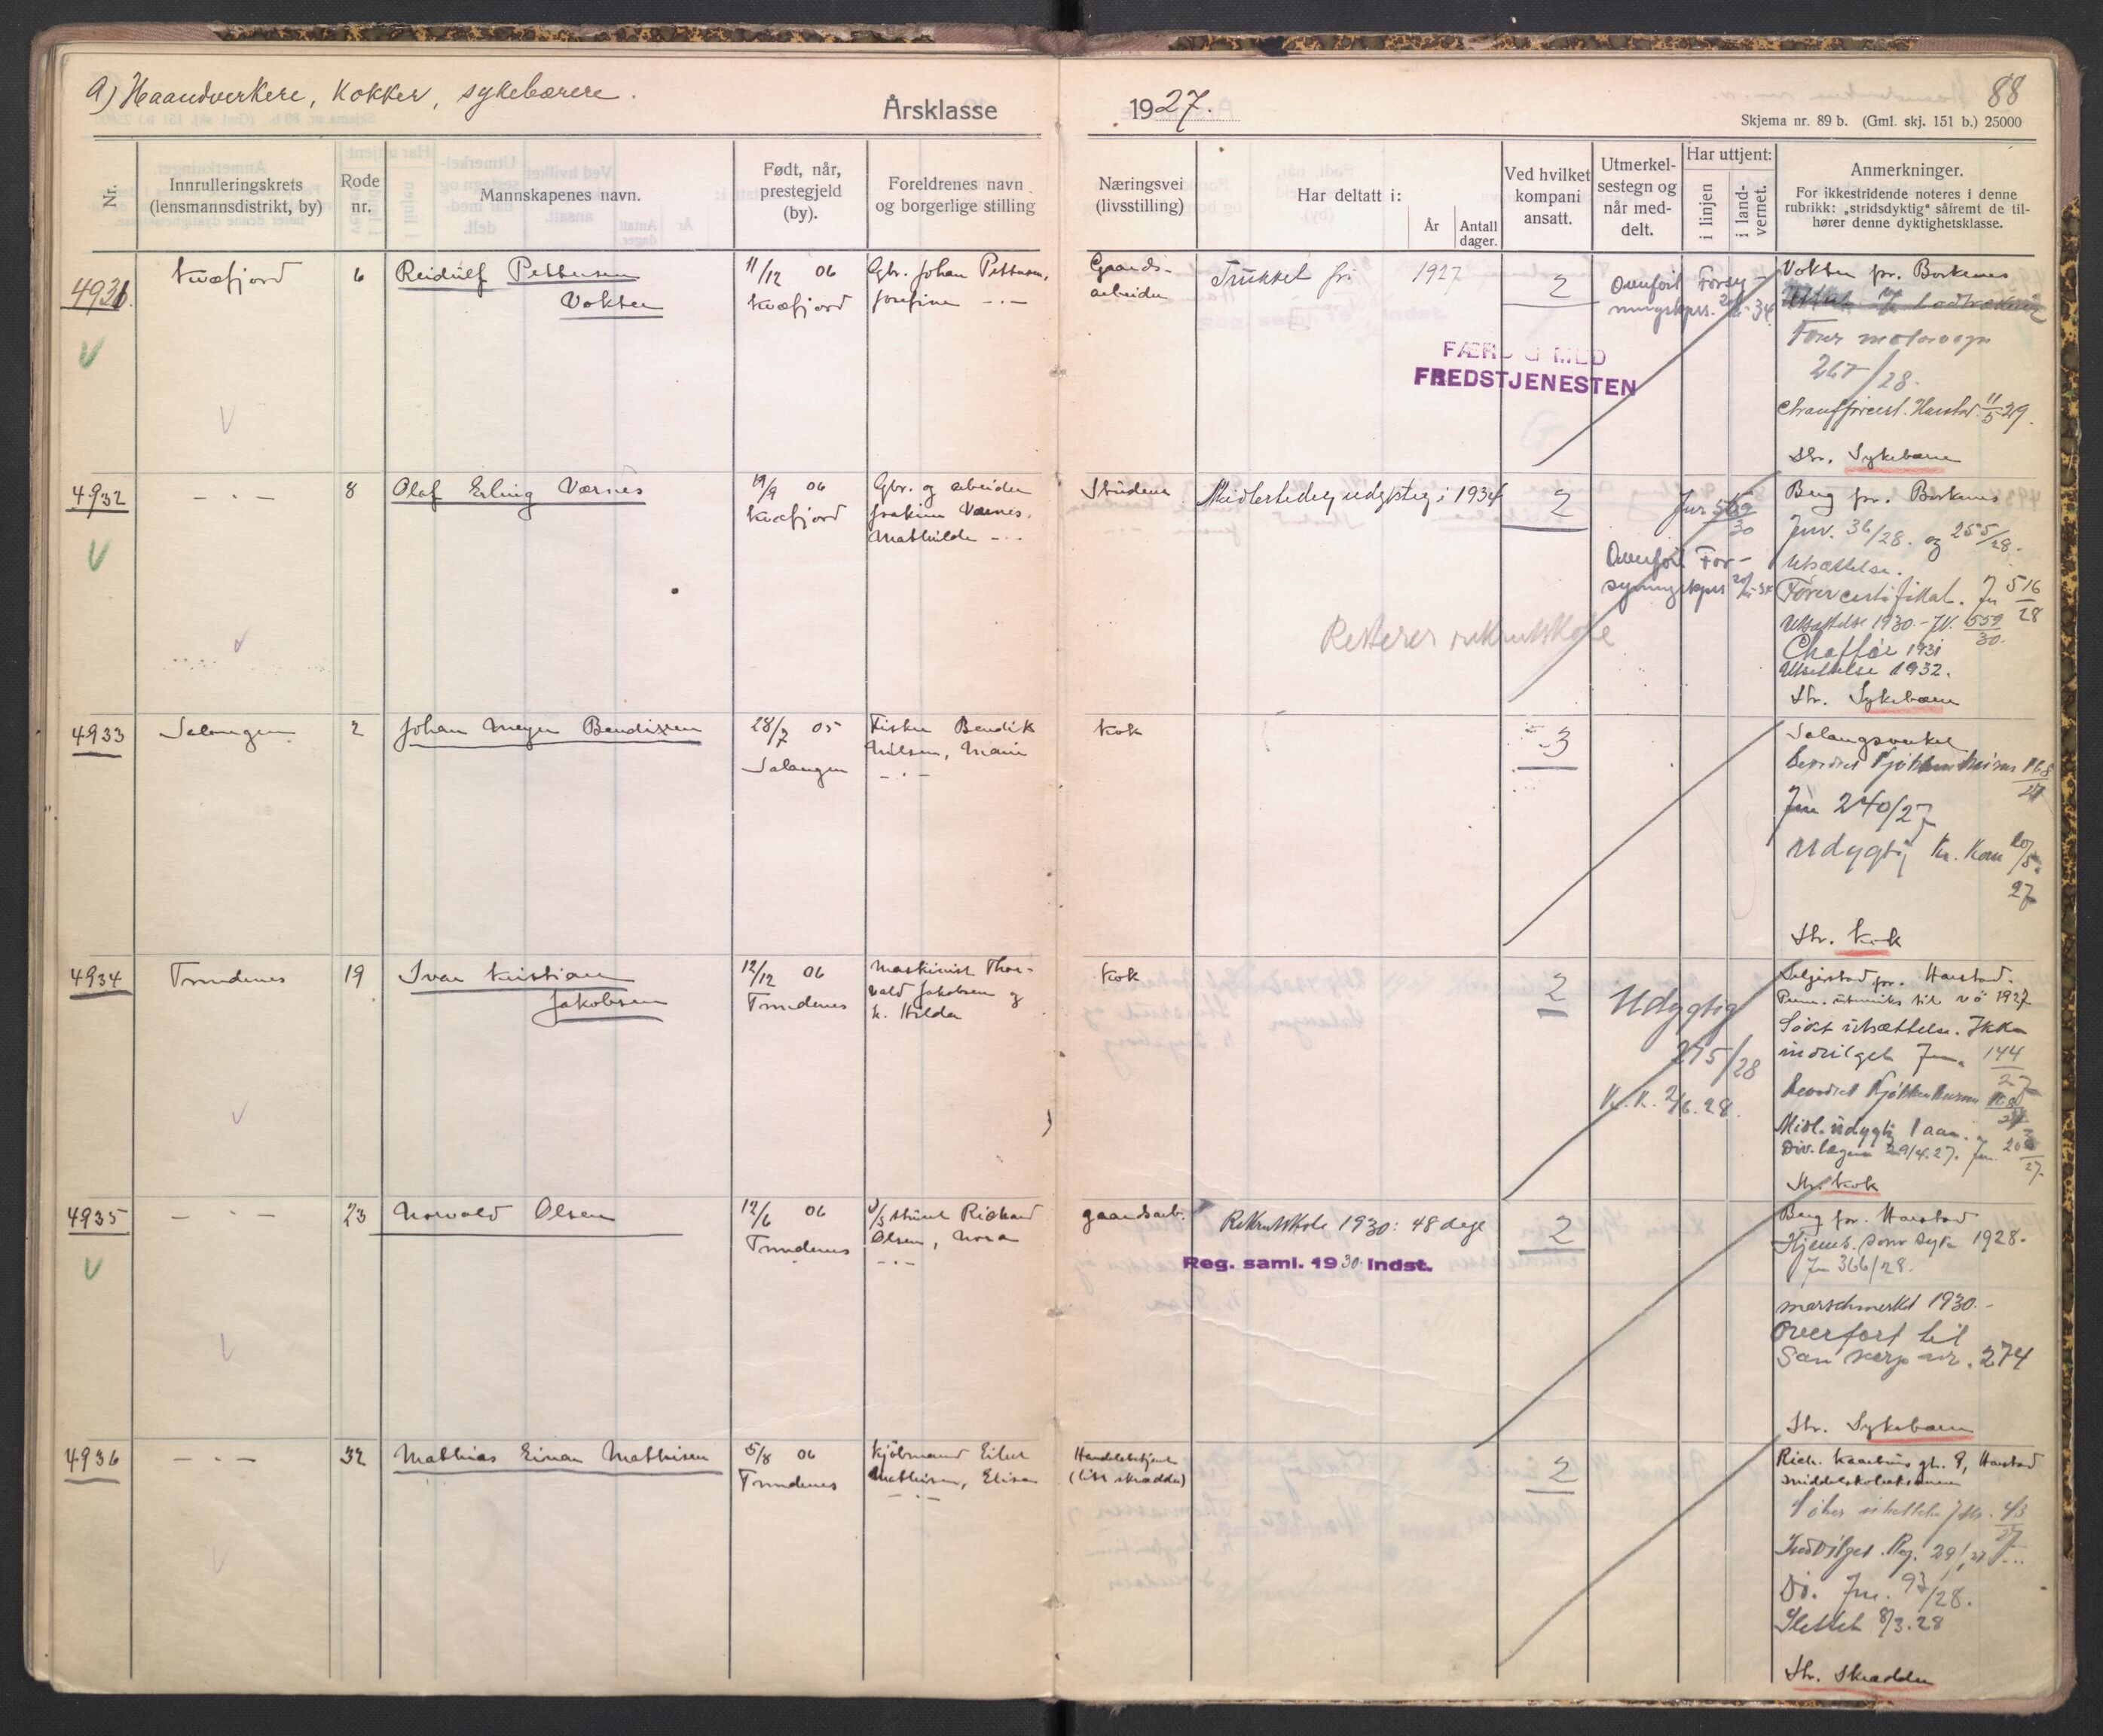 a) Haandverkere, kokker, sykebærere.
Årsklasse
1927.
88
Skjema nr. 89 b. (Gml. skj. 151 b.) 25000
Nr.
Innrulleringskrets
(lensmannsdistrikt, by)
Rode
nr.
Mannskapenes navn.
Født, når,
prestegjeld
(by).
Foreldrenes navn
og borgerlige stilling
Næringsvei
(livsstilling)
Har deltatt i:
År
Antall
dager.
Ved hvilket
kompani
ansatt.
Utmerkel-
sestegn og
når med-
delt.
Har uttjent:
i linjen
i land-
vernet.
Anmerkninger.
For ikkestridende noteres i denne
rubrikk: „stridsdyktig" såfremt de til-
hører denne dyktighetsklasse.
4931.
Kvæfjord
6
Reidulf Pettersen
Vokten
11/12 06
Kvæfjord
Gbr. Johan Pettersen,
Josefine -.-
Gaards-
arbeider
Trukket fri 1927
2
Overført Forsy-
ningskprs.
34
FÆRDIG MED
FREDSTJENESTEN
Vokten pr. Borkenes
Fører motorvogn
267/28.
Chaufførcert. Harstad 11/5 29.
Str. Sykebærer
4932
- . -
8
Olaf Erling Værnes
19/9 06
Kvæfjord
Gbr. og arbeider
Joakim Værnes,
Mathilde -.-
Student
Midlertidig udygtig i 1934
2
Jnr 559/30
Overført For-
syningskprs
Resterer rekrutskole
Berg pr. Borkenes
Jnr. 36/28. og 255/28.
Utsættelse.
Førercertifikat. Jn 516/28
Utsættelse 1930 - JN. 559/30.
Chaffør 1931
Utsettelse 1932.
Str. Sykebærer
4933
Salangen
2
Johan Meyer Bendixsen
28/7 05
Salangen
Fisker Bendik
Nilsen, Marie
- . -
Kok
3
Salangsverket
Beordret Kjøkkenkursus 168/27
Jnr 240/27
Udygtig Kr. Kom 20/5.
27
Str. Kok
4934
Trondenes
19
Ivar Kristian
Jakobsen
12/12 06
Trondenes
Maskinist Thor-
vald Jakobsen og
h. Hilda
Kok
2
Udygtig
275/28
K. K. 2/6. 28.
Seljestad pr. Harstad.
1927
Søkt utsættelse. Ikke
indvilget Jnr. 144/27
Beordret Kjøkkenkursus 168/27
Midl. udygtig 1 aar.
Div. lægen 29/4. 27. Jnr.
27.
Str. Kok
4935
- . -
23
Norvald Olsen
12/6 06
Trondenes
Rickard
Olsen, Nora
- . -
gaardsarb.
Rekrutskole 1930: 48 dage
Reg. saml. 1930 Indst.
2
Berg pr. Harstad
Hjems. som syk 1928.
Jnr 366/28.
marschmerket 1930.-
Overført til
San korp nr. 274
Str. Sykebærer
4936
- . -
32
Mathias Einar Mathisen
5/8 06
Trondenes
Kjøbmand Eilert
Mathisen, Elisa
- . -
Handelsbetjent
(litt skrædder)
2
Rich. Kaarbøs gt. 9, Harstad
middelskoleeksamen
Søker utsettelse Jnr. 43/27
Indvilget. Reg.
Do. Jnr. 93/28.
Slettet 8/3.28
Str. Skrædder